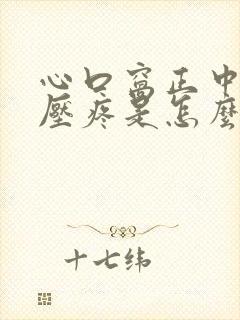 心口窝正中
壓疼是怎麼
十七纬